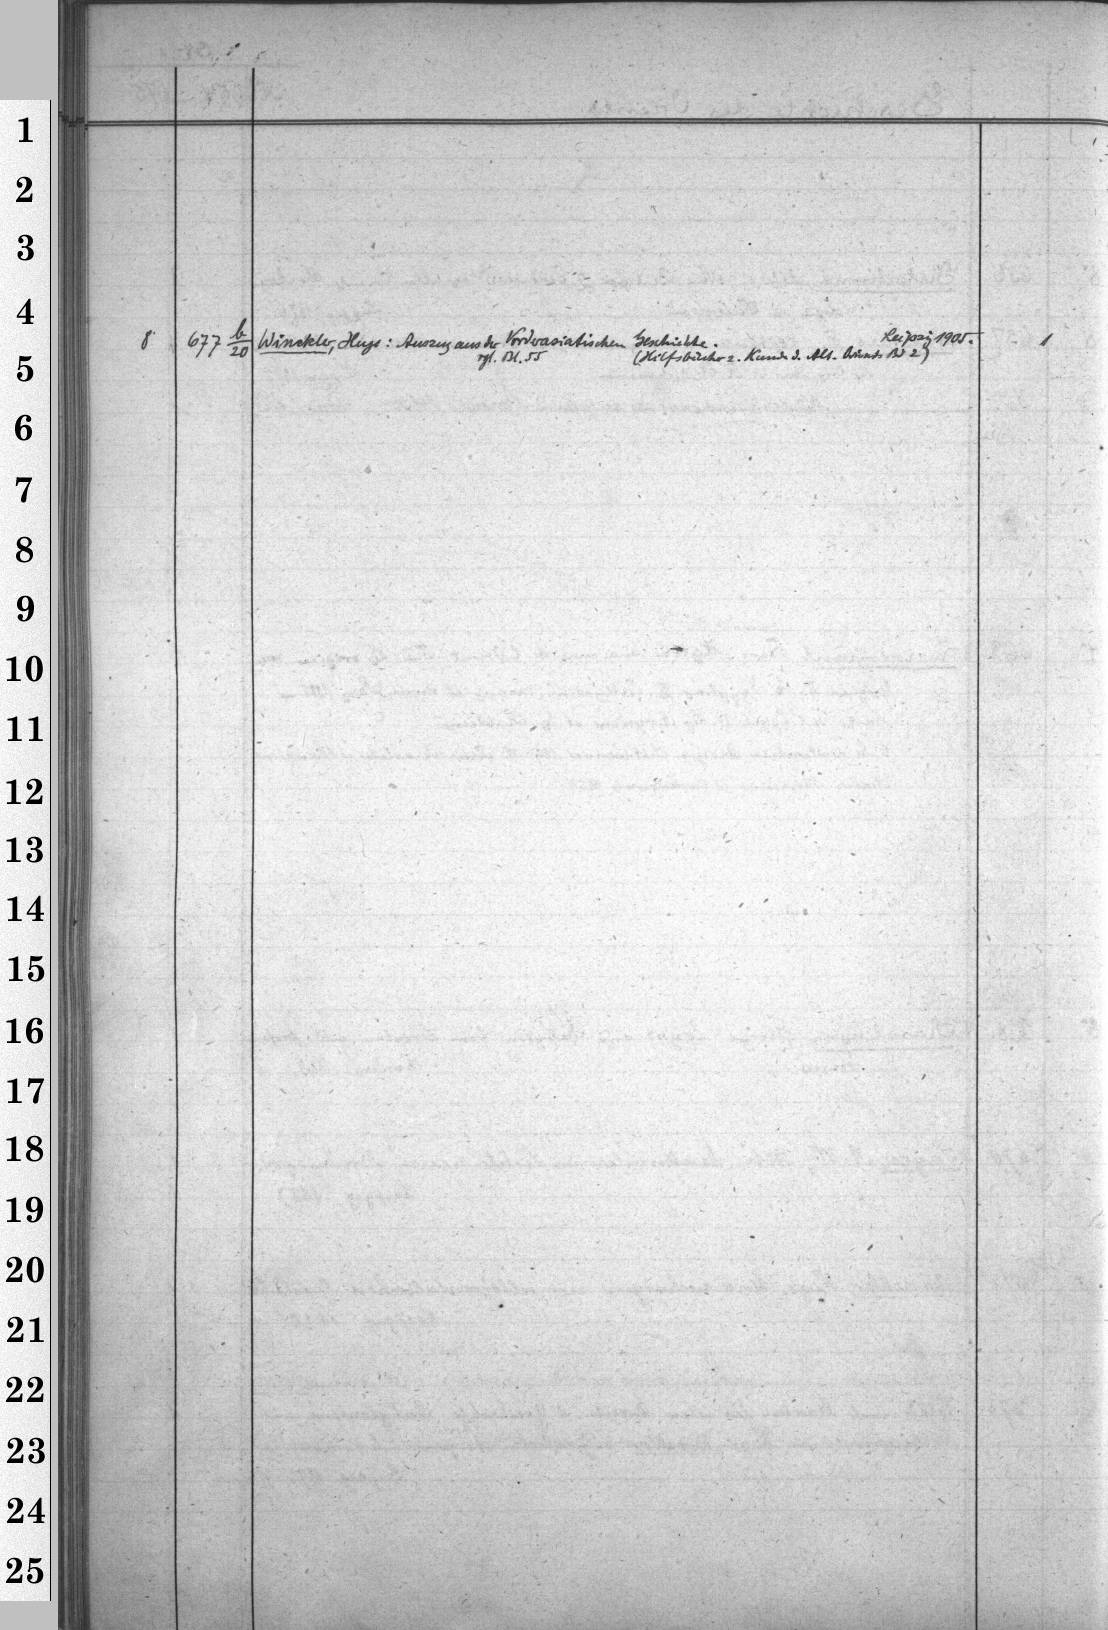 1
2
3
4
8 677 b/20 Winckler, Hugo: Auszug aus der Vorderasiatischen Geschichte. Leipzig 1905. 1
vgl. Bl. 55 (Hilfsbücher z. Kunde d. Alt. Orients Bd 2)
5
6
7
8
9
10
11
12
13
14
15
16
17
18
19
20
21
22
23
24
25